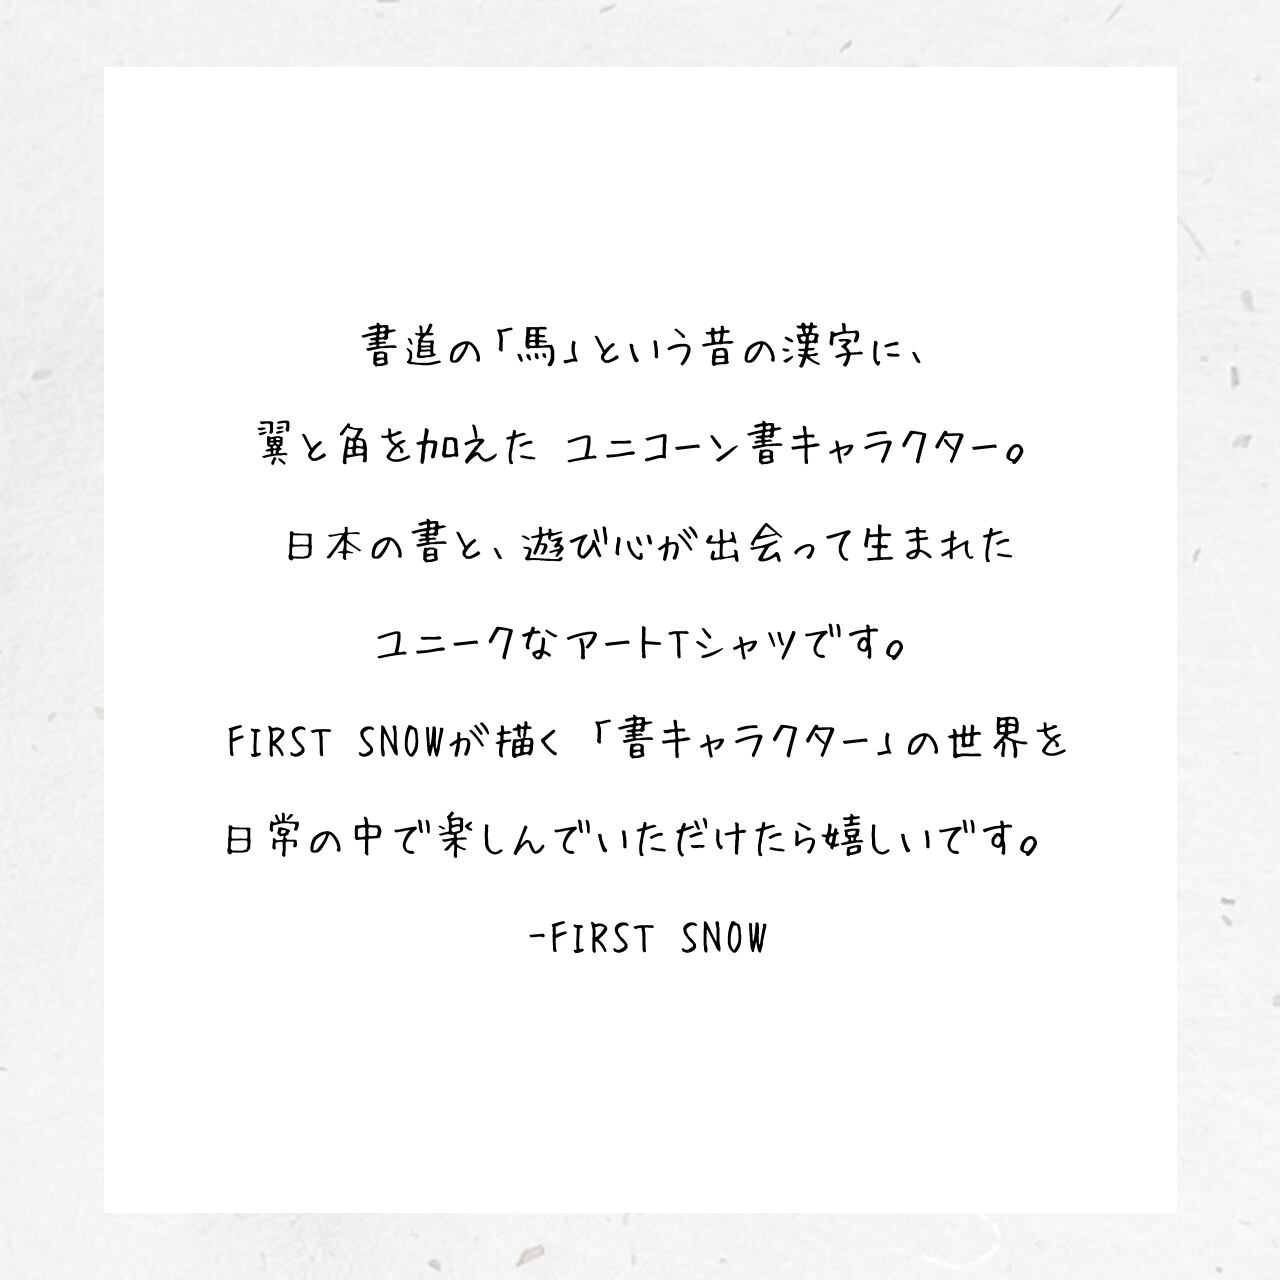 書道の「馬」という昔の漢字に、
翼と角を加えた ユニコーン書キャラクター。
日本の書と、遊び心が出会って生まれた
ユニークなアートTシャツです。
FIRST SNOWが描く 「書キャラクター」の世界を
日常の中で楽しんでいただけたら嬉しいです。
-FIRST SNOW